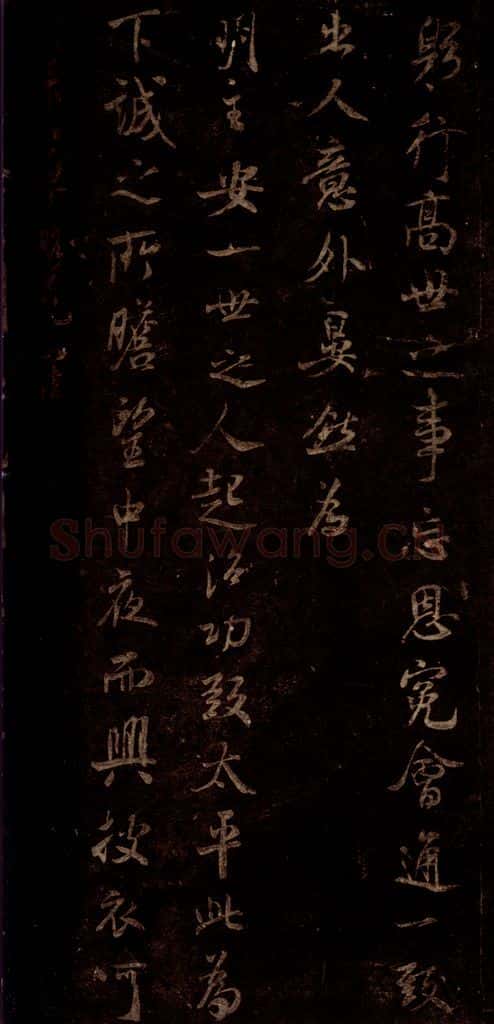 行高世之事忘恩冤會通一致
出人意外晏然為
明主安一世之人起治功致太平此為
下誠之所瞻望中夜而興披衣可
Shufawang.cn